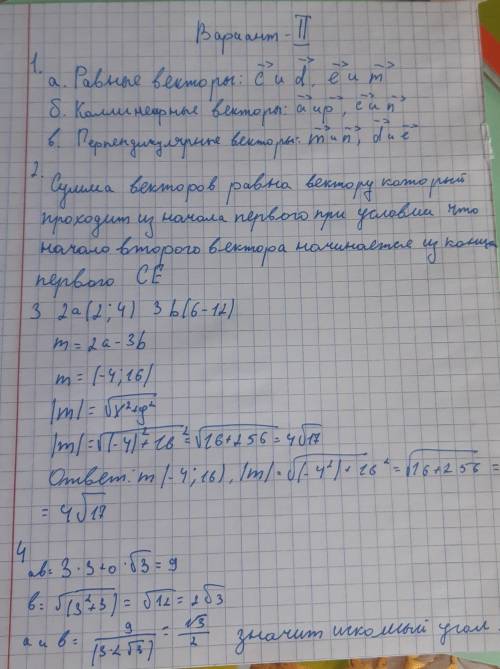 Вариант - II
1.
а. Равные векторы: c⃗ и d⃗, e⃗ и m⃗
б. Коллинеарные векторы: a⃗ и p⃗, c⃗ и n⃗
в. Перпендикулярные векторы: m⃗ и n⃗, d⃗ и e⃗
2.
Сумма векторов равна вектору который
проходит из начала первого при условии что
начало второго вектора начинается из конца
первого CE
3 2a(2;4) 3b(6-12)
m = 2a - 3b
m = (-4;16)
|m| = √x²+y²
|m| = √(-4)²+16² = √16+256 = 4√17
Ответ: m(-4;16), |m| = √(-4²)+16² = √16+256 =
= 4√17
4
ab = 3·3+0·√3 = 9
b = √(3²+3) = √12 = 2√3
a и b = 9/(3·2√3) = √3/2 значит искомый угол